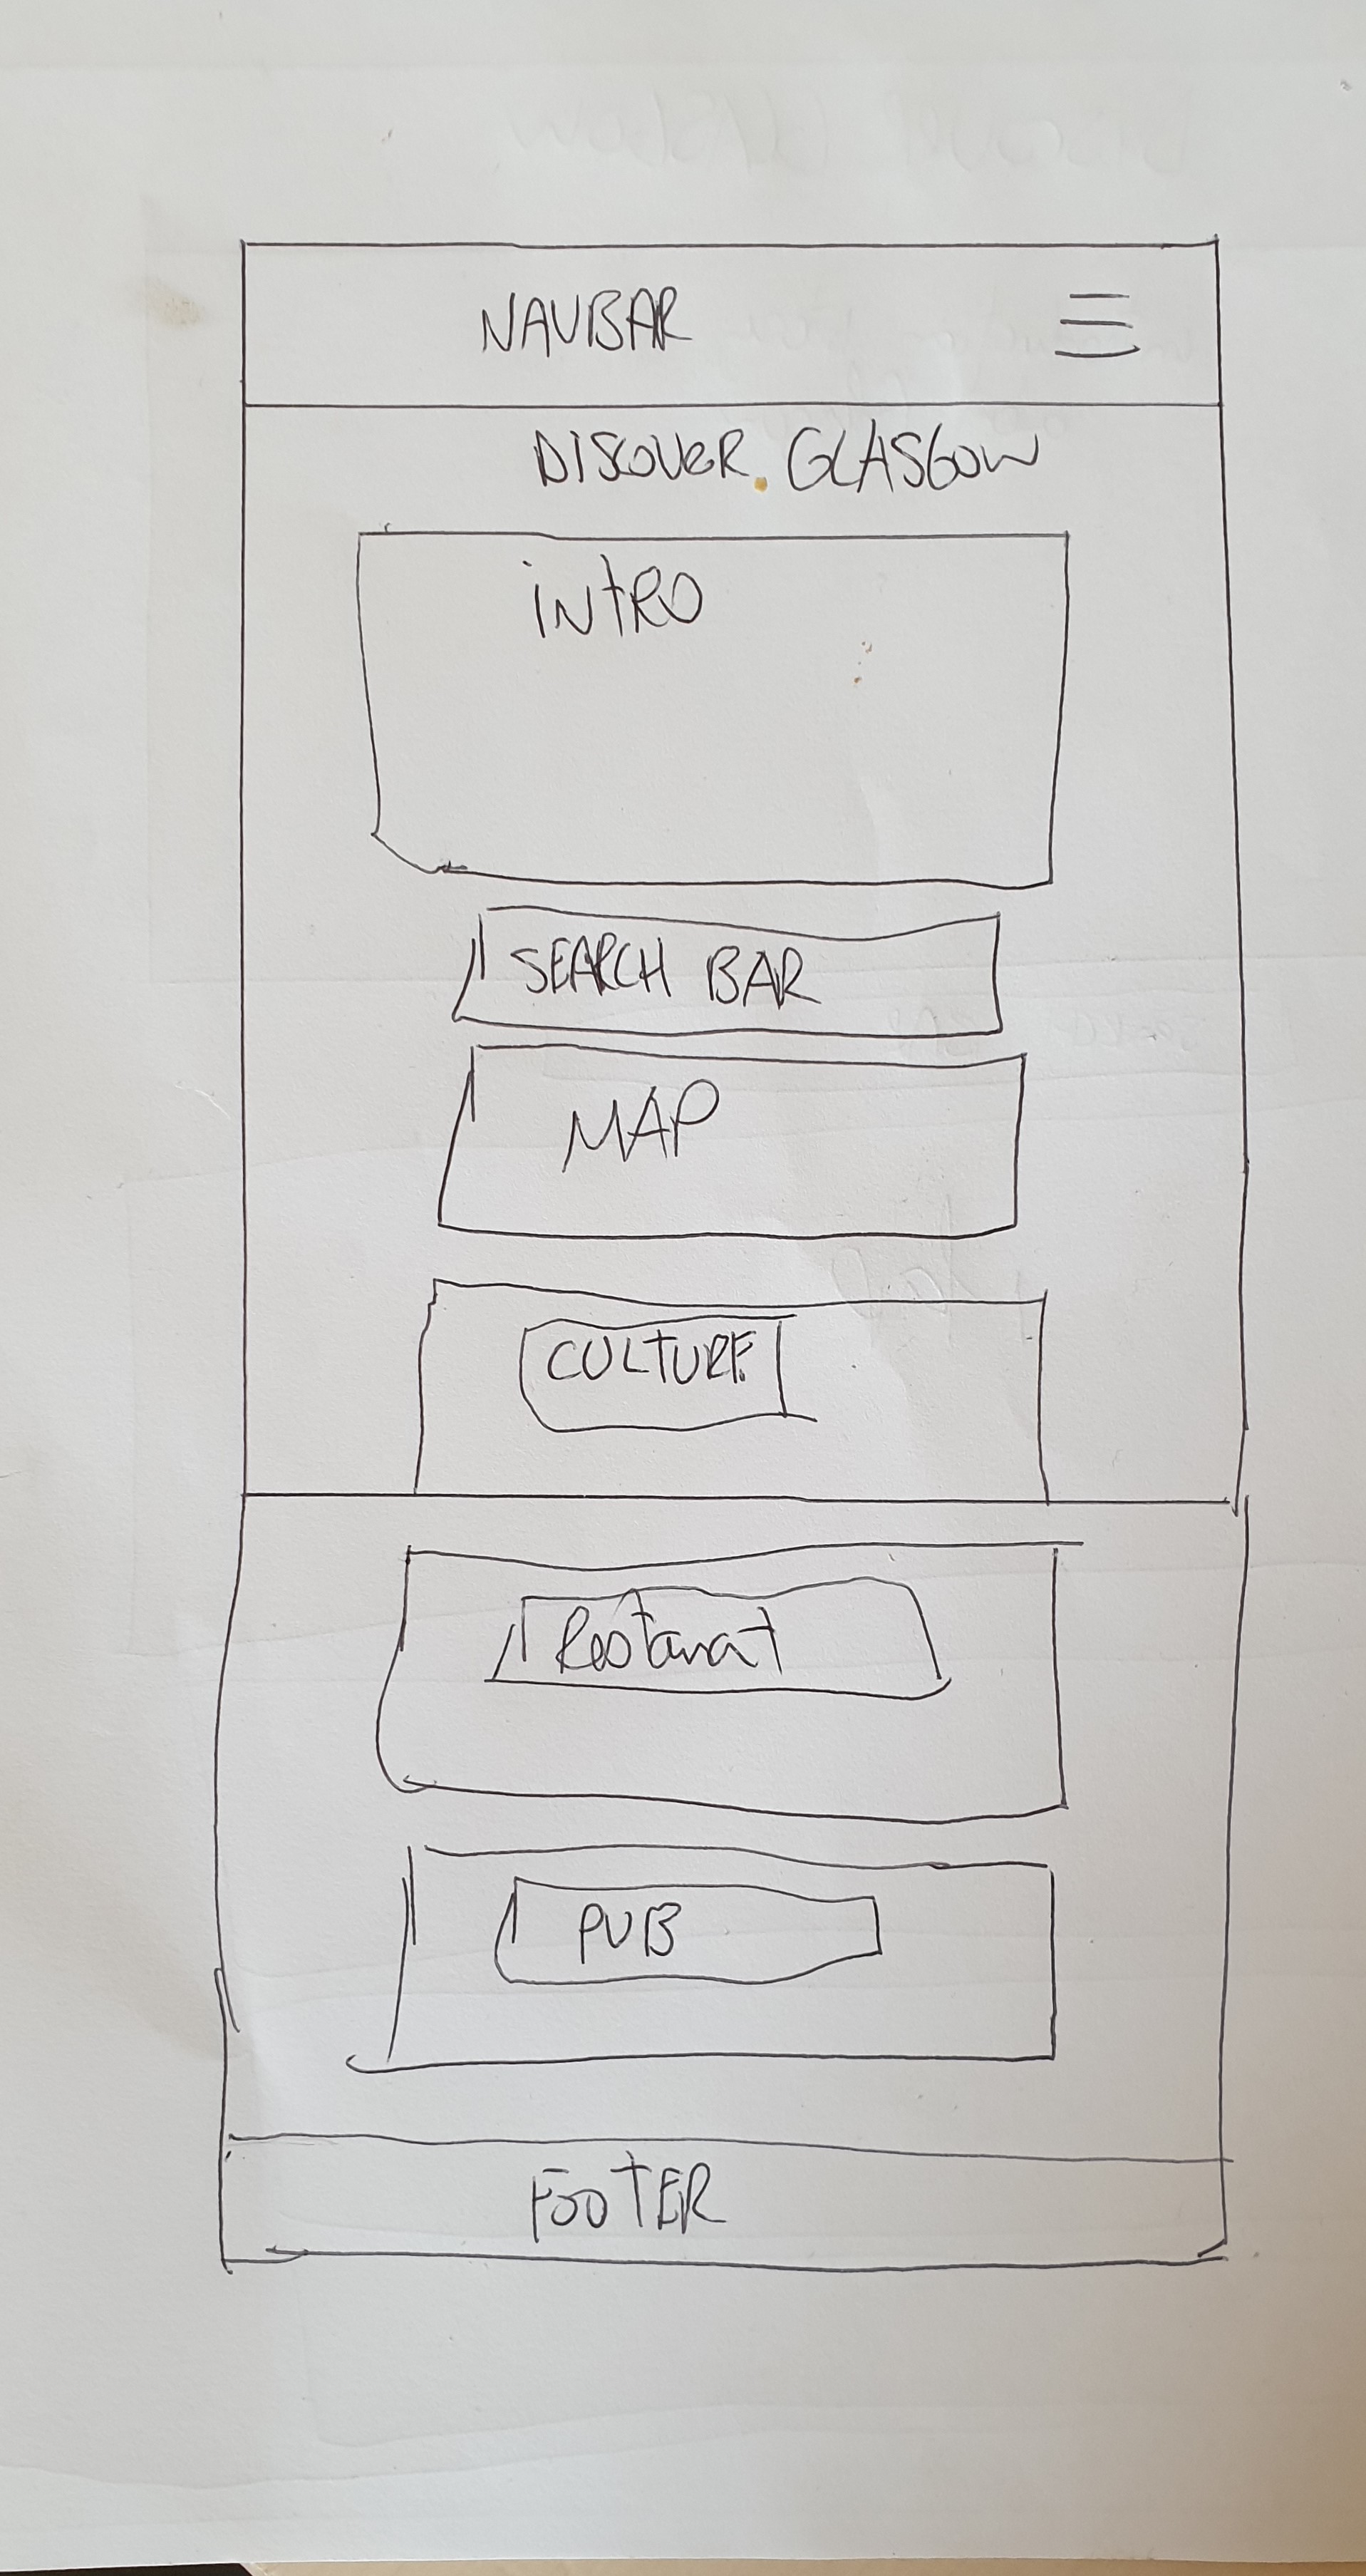 NAVBAR
DISCOVER GLASGOW
iNtRO
SEARCH BAR
MAP
CULTURE
Restarat
PUB
FOOTER